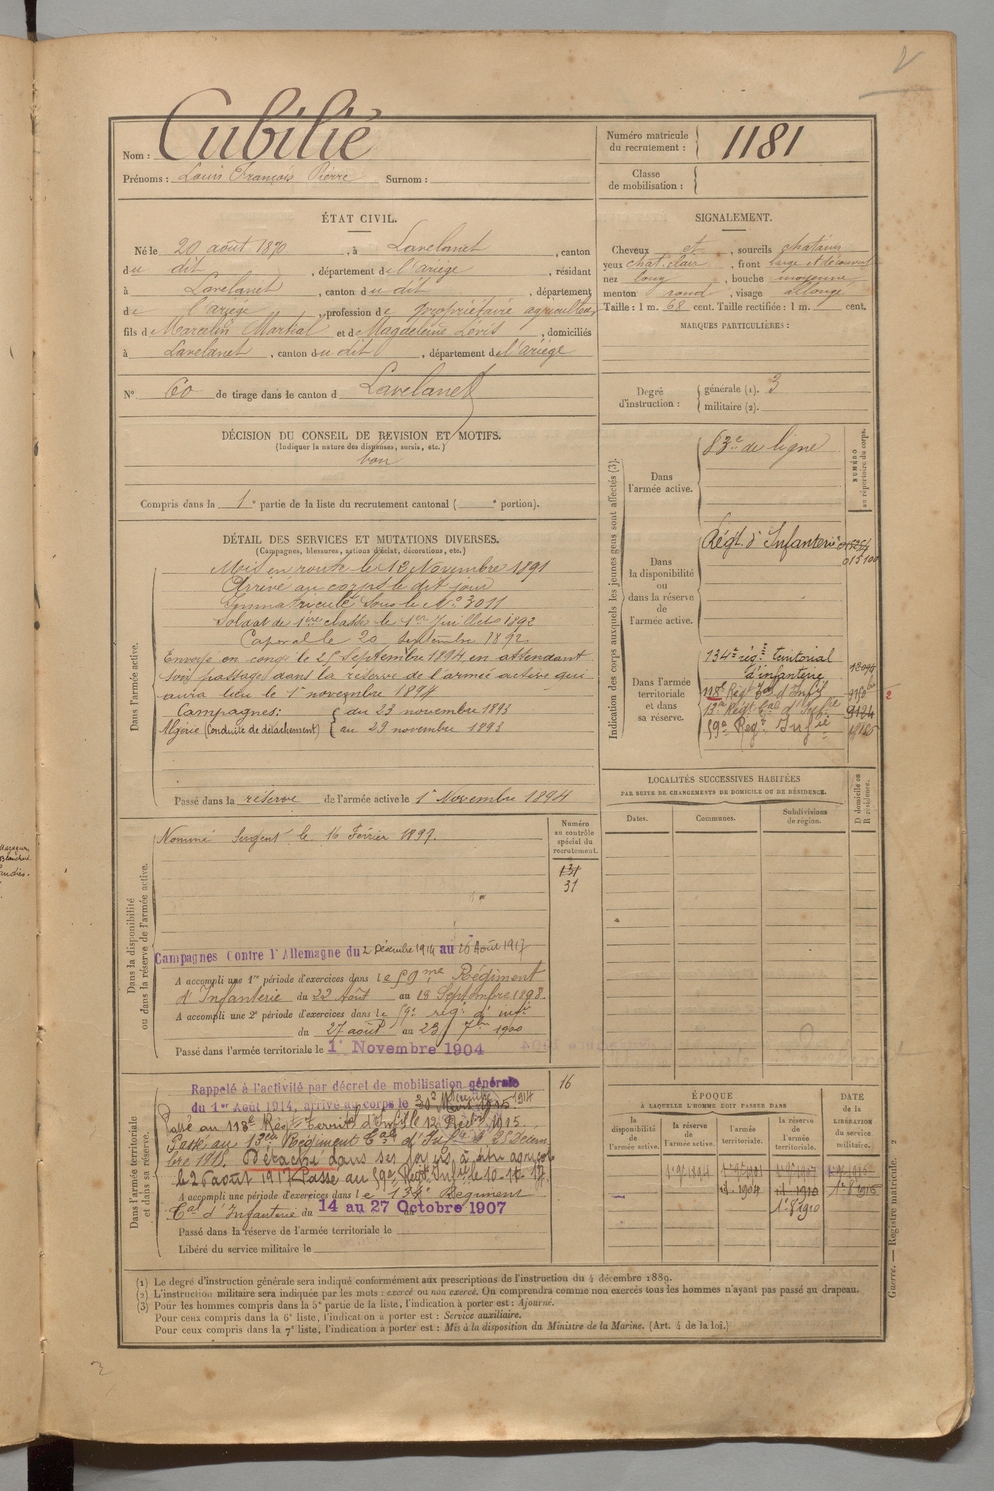 Nom : Cubilié
Prénoms : Louis François Pierre Surnom :
Numéro matricule du recrutement : 1181
Classe de mobilisation :
ÉTAT CIVIL.
Né le 20 août 1870, à Lavelanet, canton
du dit, département de l'ariège, résidant
à Lavelanet, canton du dit, département
de l'ariège, profession de propriétaire agriculteur,
fils de Marcelin Martial et de Magdeleine, domiciliés
à Lavelanet, canton du dit, département de l'ariège
N° 60 de tirage dans le canton d Lavelanet
SIGNALEMENT.
Cheveux et, sourcils chatains
yeux chat. clair, front large et découvert
nez long, bouche moyenne
menton rond, visage allongé
Taille : 1 m. 68 cent. Taille rectifiée : 1 m. cent.
MARQUES PARTICULIÈRES :
Degré d'instruction : générale (1). 3
militaire (2).
DÉCISION DU CONSEIL DE REVISION ET MOTIFS.
(Indiquer la nature des dispenses, sursis, etc.)
bon
Compris dans la 1re partie de la liste du recrutement cantonal ( e portion).
DÉTAIL DES SERVICES ET MUTATIONS DIVERSES.
(Campagnes, blessures, actions d'éclat, décorations, etc.)
Dans l'armée active.
Mis en route le 12 Novembre 1891
Arrivé au corps le dit jour
Immatriculé sous le N° 3011
Soldat de 1ère classe le 1er Juillet 1892
Caporal le 20 Septembre 1892.
Envoyé en congé le 25 Septembre 1894 en attendant
son passage dans la réserve de l'armée active qui
aura lieu le 1er novembre 1894
Campagnes: du 23 novembre 1893
Algérie (Conduite de détachement) au 29 novembre 1893
Passé dans la réserve de l'armée active le 1er Novembre 1894
Dans la disponibilité ou dans la réserve de l'armée active.
Numéro au contrôle spécial du recrutement.
131
31
Nommé Sergent le 16 Février 1897.
Campagnes Contre l'Allemagne du 2 Décembre 1914 au 26 Août 1917
A accompli une 1re période d'exercices dans le 59me Régiment
d'Infanterie du 22 Août au 18 Septembre 1898.
A accompli une 2e période d'exercices dans le 59e rég. d'infie
du 27 août au 23 7bre 1900
Passé dans l'armée territoriale le 1er Novembre 1904
Dans l'armée territoriale et dans sa réserve.
16
Rappelé à l'activité par décret de mobilisation générale
du 1er Août 1914, arrivé au corps le
Passé au 118e Régt Territ d'Inf le 12 1915.
Passé au 13eme Régiment Cal d'Infie le 25 Décem
bre 1915. Détaché dans ses foyers à titre agricole
le 26 août 1917. Passé au 59e Régt Infie le 10.
A accompli une période d'exercices dans le 134e Régiment
Cal d'Infanterie du 14 au 27 Octobre 1907
Passé dans la réserve de l'armée territoriale le
Libéré du service militaire le
Indication des corps auxquels les jeunes gens sont affectés (3).
NUMÉRO au répertoire du corps.
Dans l'armée active.
83e de ligne
Dans la disponibilité ou dans la réserve de l'armée active.
Régt. d'Infanterie
Dans l'armée territoriale et dans sa réserve.
134e régt territorial
d'infanterie
118e Régt Tal d'Infie
13e Régt Tal d'Infie
9124
59e Régt Infie
2
LOCALITÉS SUCCESSIVES HABITÉES
PAR SUITE DE CHANGEMENTS DE DOMICILE OU DE RÉSIDENCE.
Dates.
Communes.
Subdivisions de région.
D domicile ou R résidence.
ÉPOQUE
À LAQUELLE L'HOMME DOIT PASSER DANS
DATE de la LIBÉRATION du service militaire.
la disponibilité de l'armée active.
la réserve de l'armée active.
l'armée territoriale.
la réserve de l'armée territoriale.
1er 9bre 1894
1904
1910
Guerre. — Registre matricule. 2
(1) Le degré d'instruction générale sera indiqué conformément aux prescriptions de l'instruction du 4 décembre 1889.
(2) L'instruction militaire sera indiquée par les mots : exercé ou non exercé. On comprendra comme non exercés tous les hommes n'ayant pas passé au drapeau.
(3) Pour les hommes compris dans la 5e partie de la liste, l'indication à porter est : Ajourné.
Pour ceux compris dans la 6e liste, l'indication à porter est : Service auxiliaire.
Pour ceux compris dans la 7e liste, l'indication à porter est : Mis à la disposition du Ministre de la Marine. (Art. 4 de la loi.)